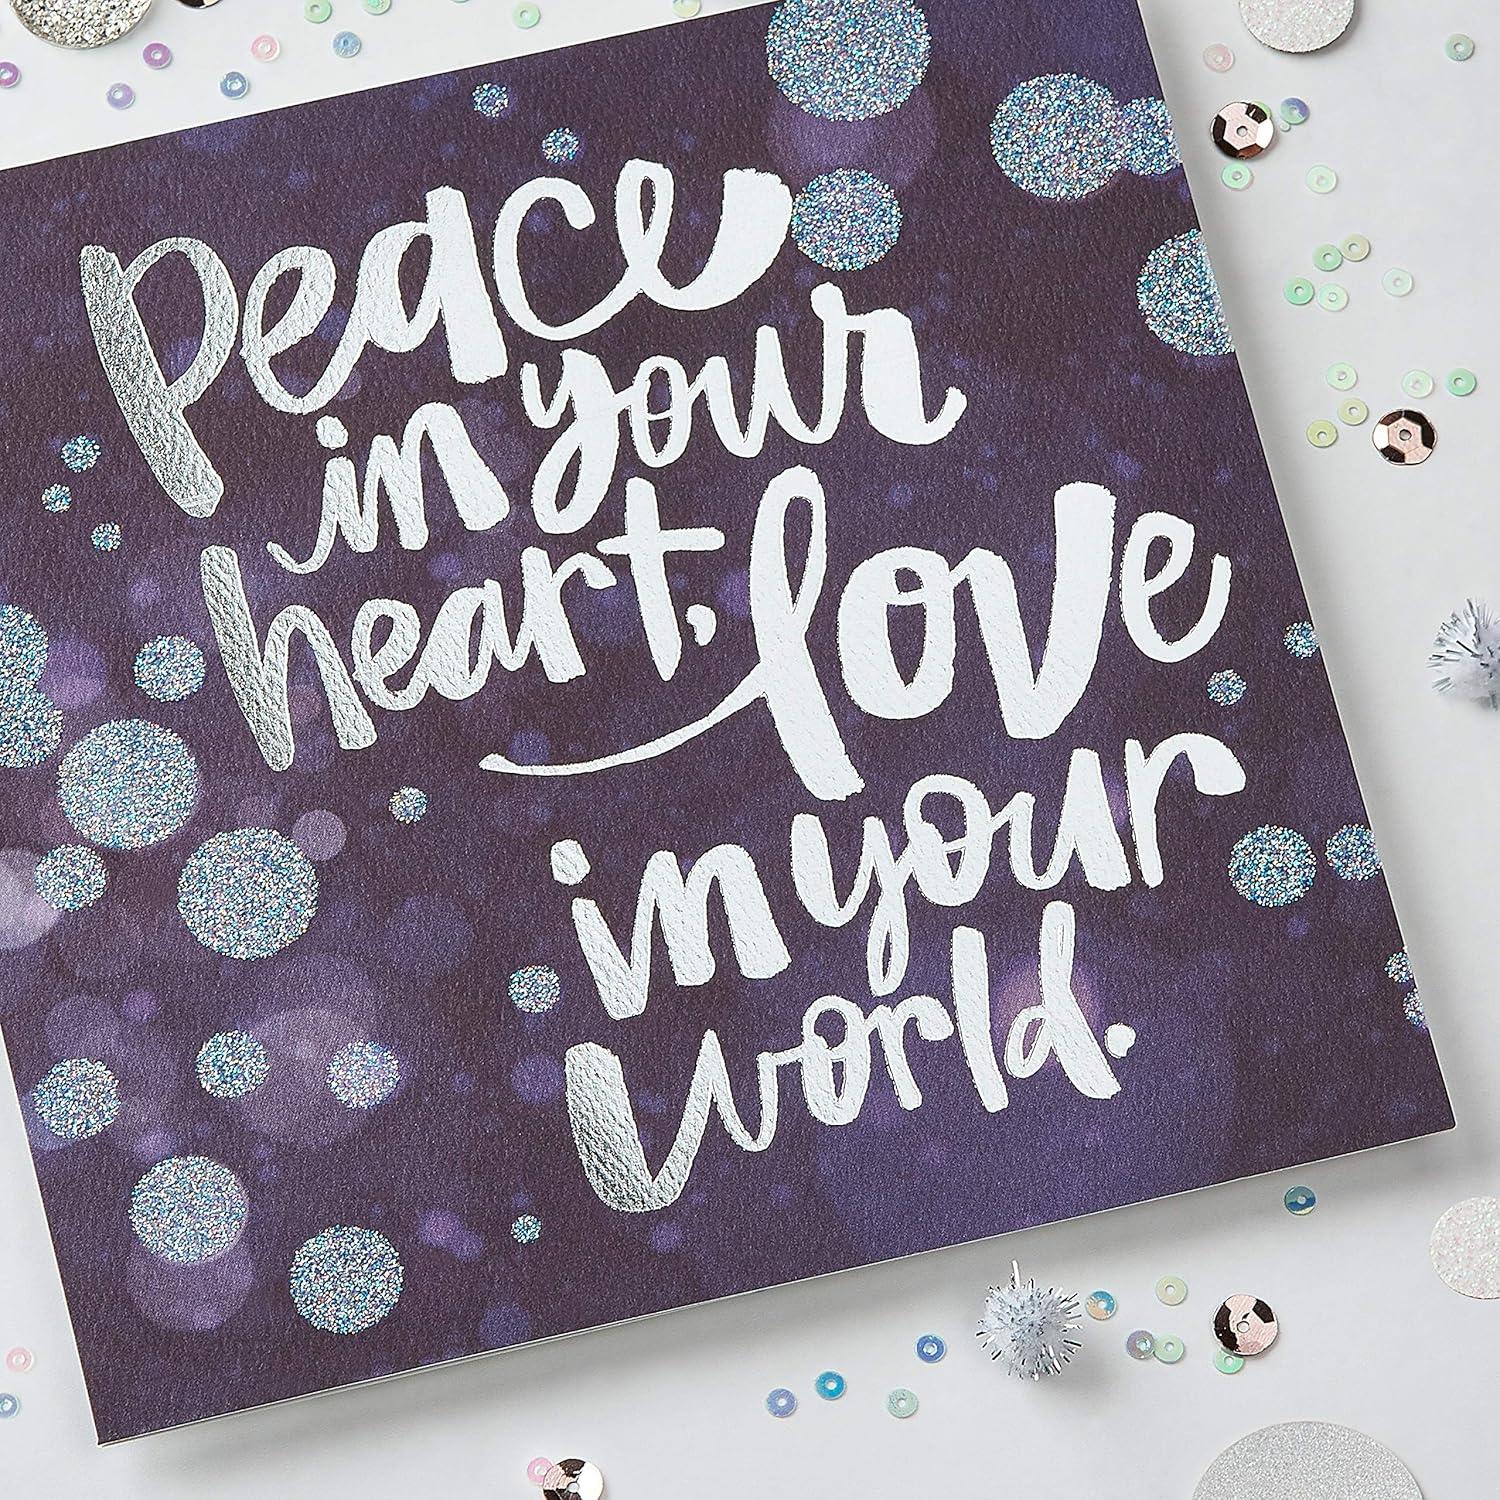 peace
in your
heart, love
in your
world.